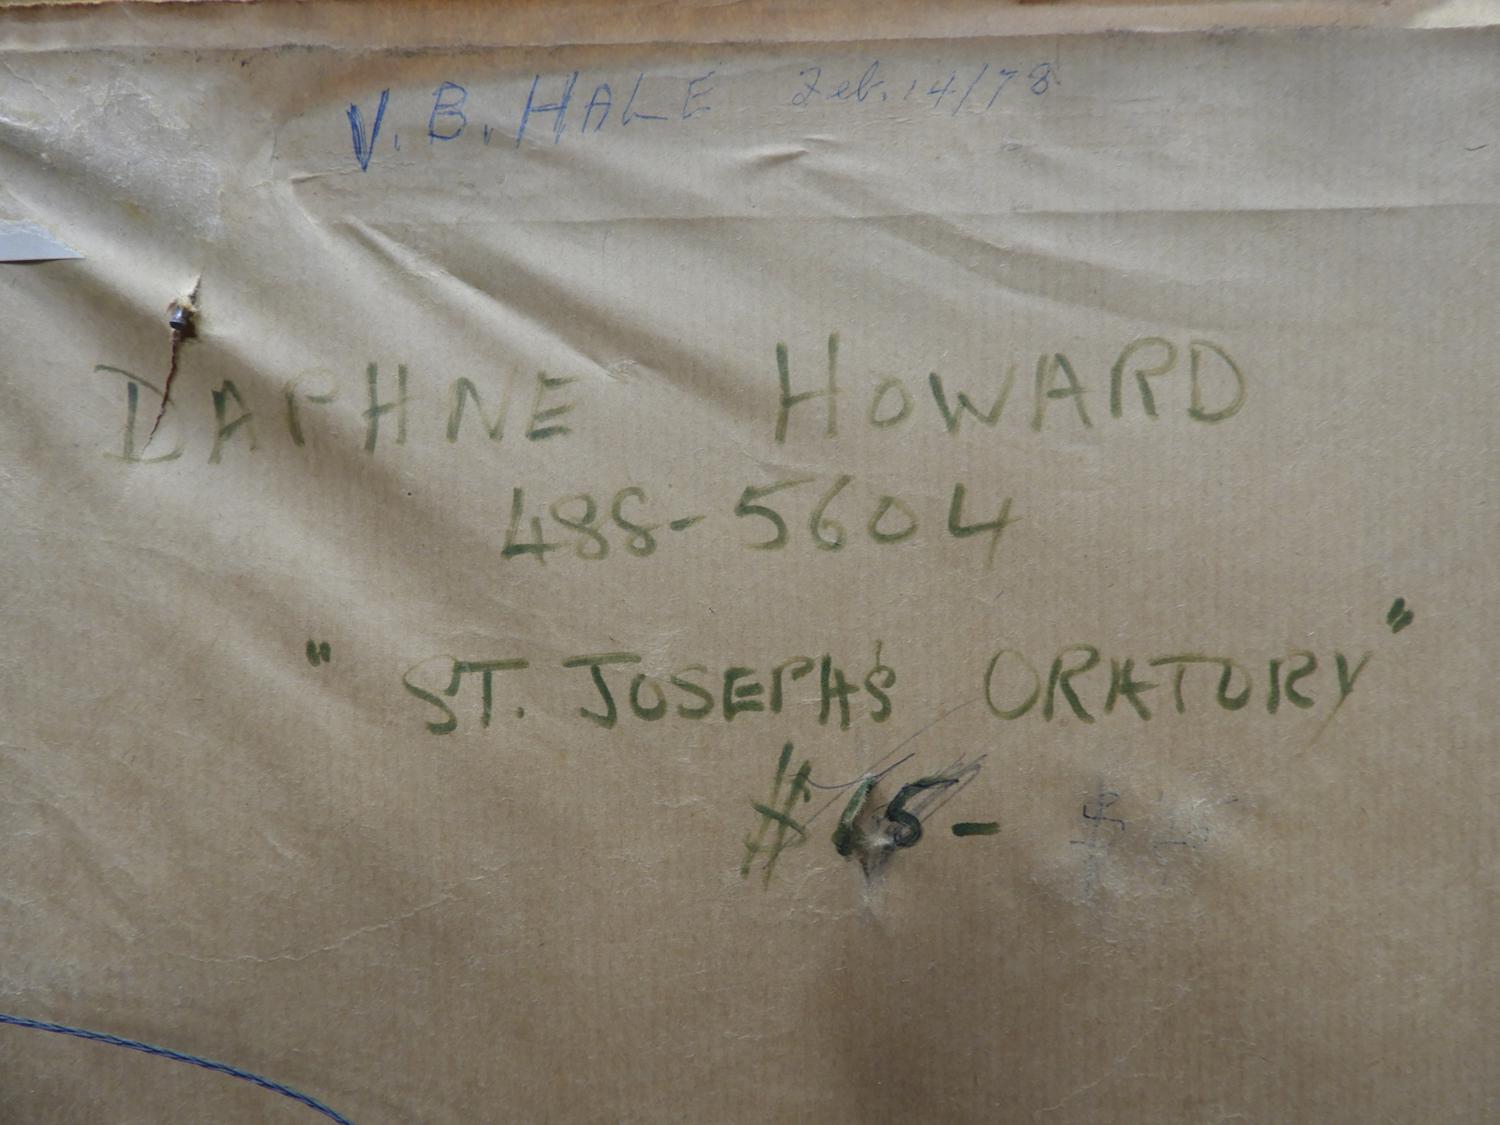 V. B. HALE Feb. 14/78
DAPHNE HOWARD
488-5604
"ST. JOSEPH'S ORATORY"
$ 15-